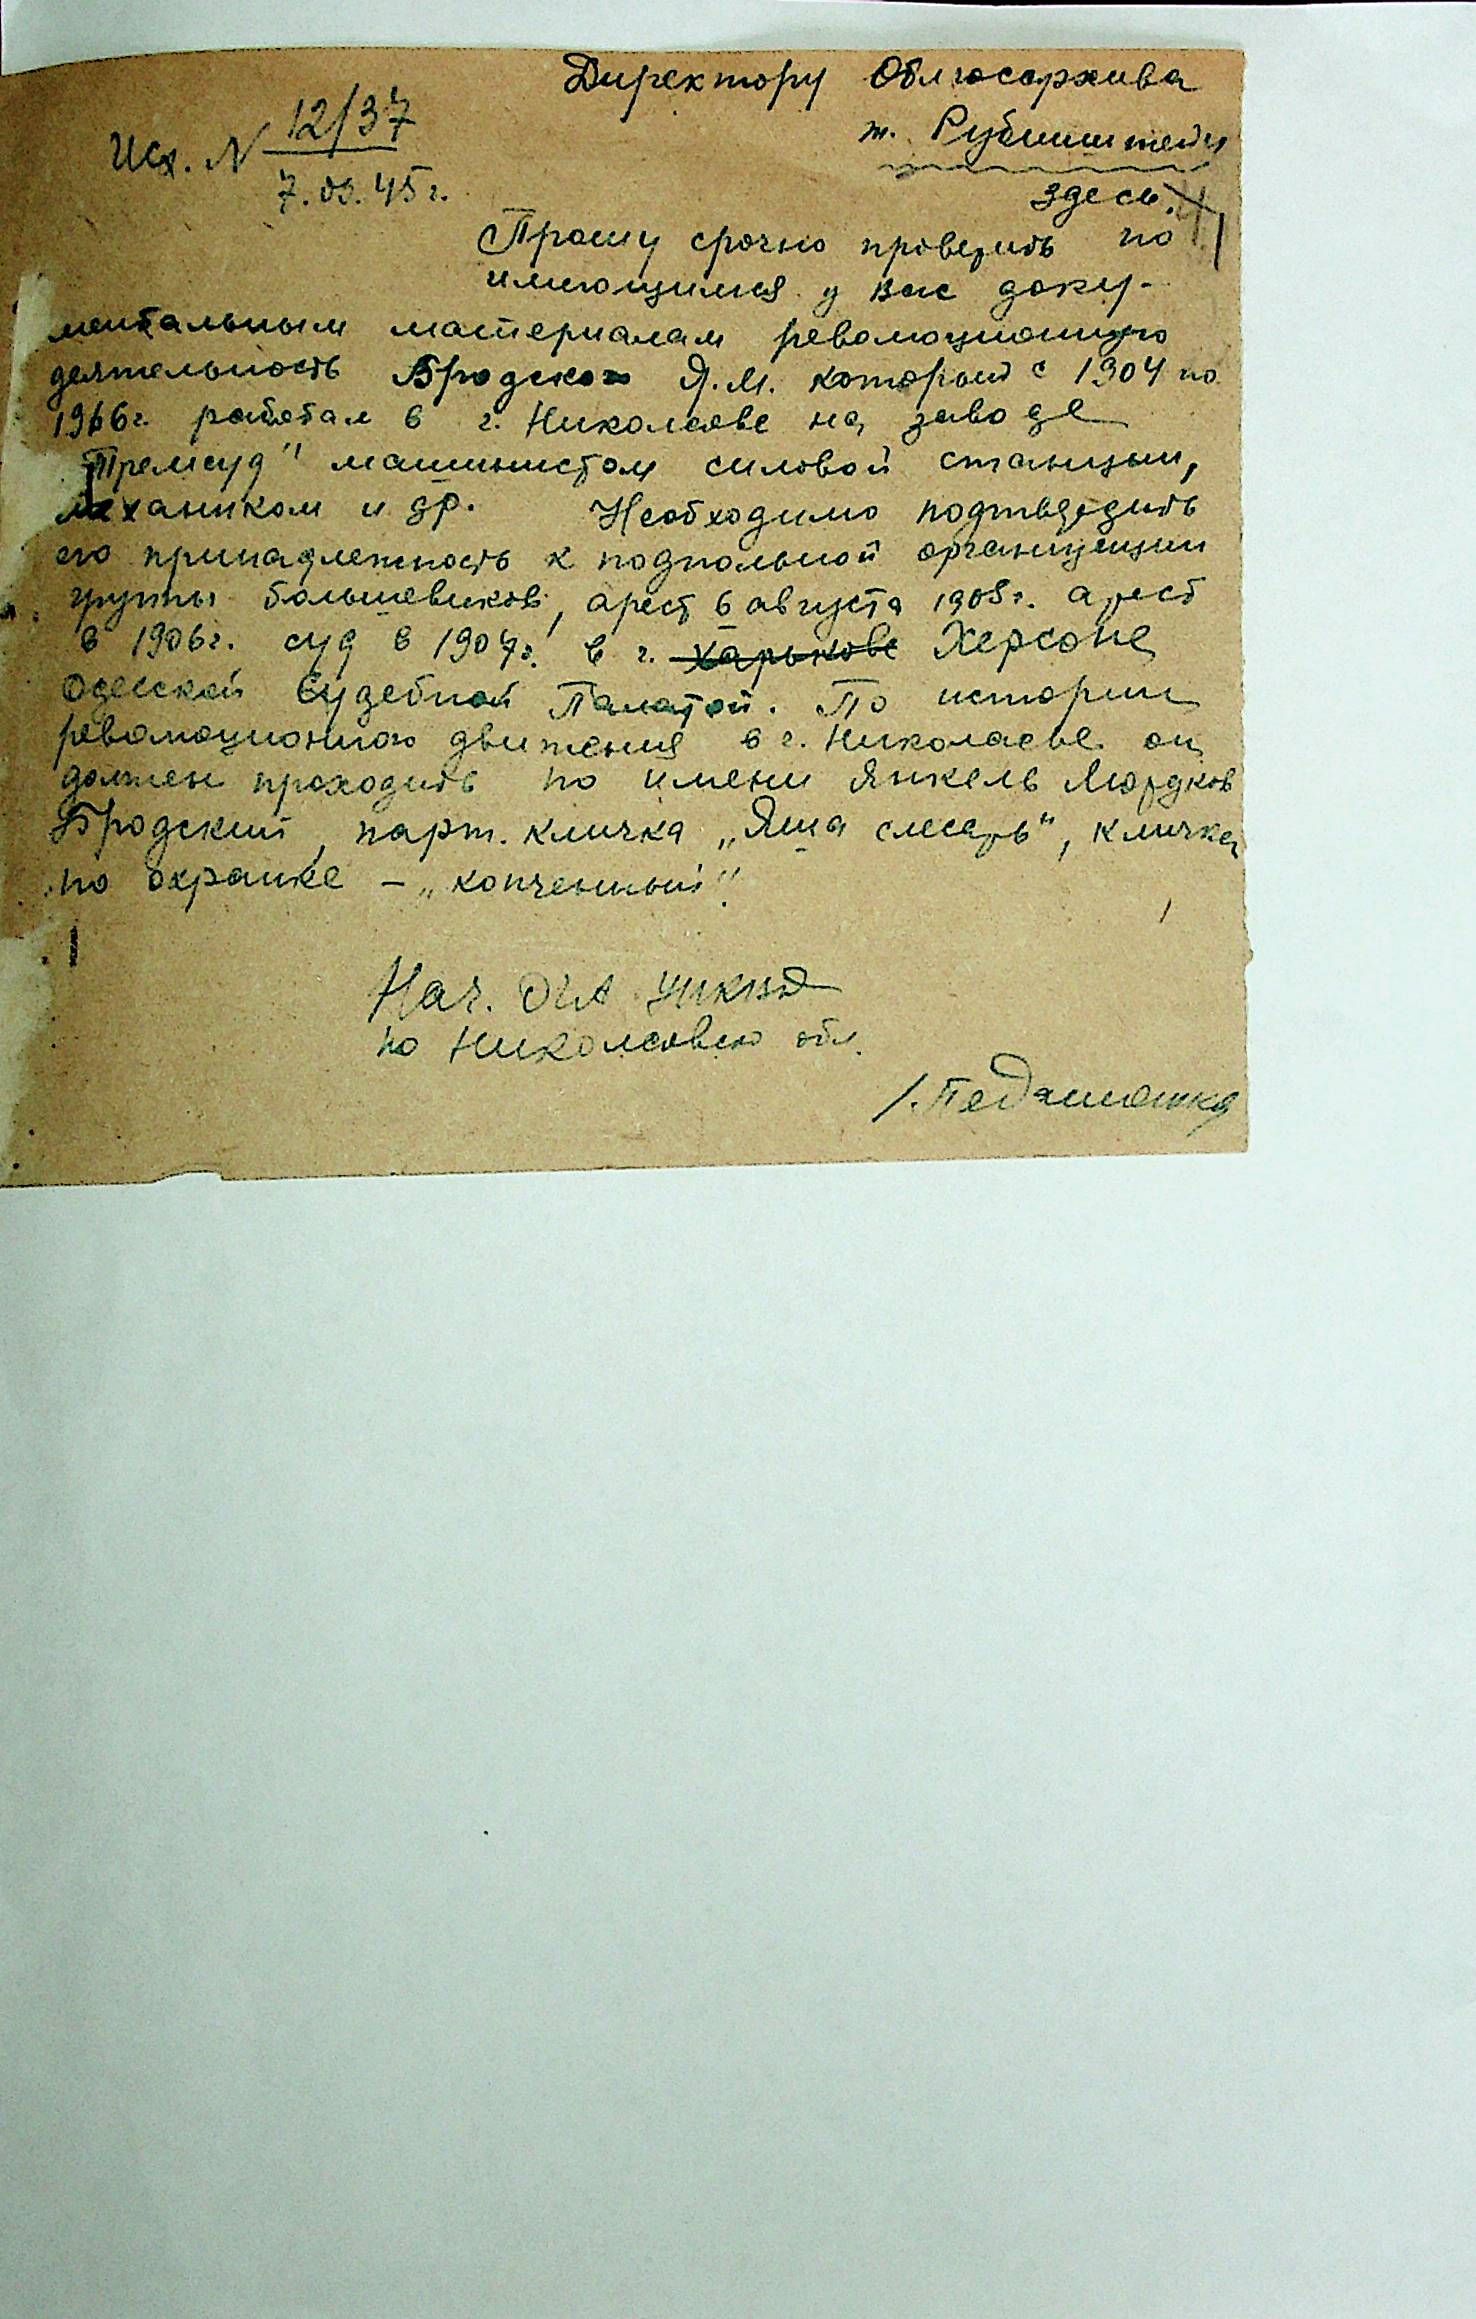 Директору Облгосархива
Исх. N 12/37
т. Рубинштейн
7.03.45 г.
здесь.
Прошу срочно проверить по
имеющимся у вас доку-
ментальным материалам революционную
деятельность Бродского Я.М. который с 1904 по
1906г. работал в г. Николаеве на заводе
"Тремсуд" машинистом силовой станции,
механиком и др. Необходимо подтвердить
его принадлежность к подпольной организации
группы большевиков, арест 6 августа 1905г. арест
в 1906г. суд в 1907г. в г. Харькове Херсоне
Одесской Судебной Палатой. По истории
революционного движения в г. Николаеве он
должен проходить по имени Янкель Мордков
Бродский, парт. кличка „Яша слесарь", кличка
по охранке – „копченный".
Нач. ОГА УНКВД
по Николаевско обл.